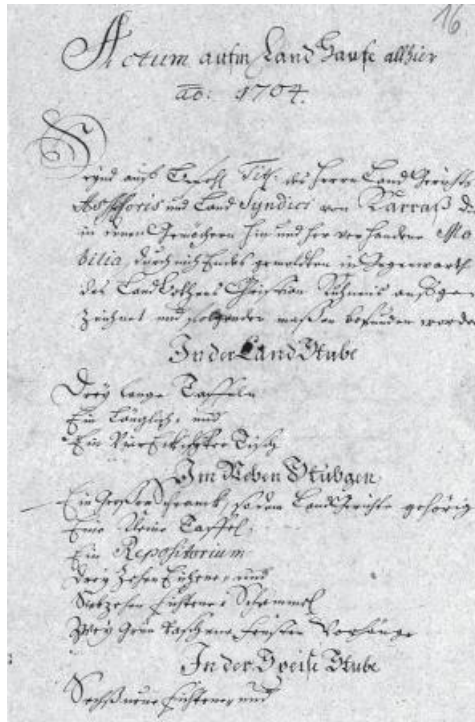 16.
Actum aufm Land Hause allhier
ao: 1704.
Seynd auf Befehl Tit. des Herrn Land Gerichts
Assessoris und Land Syndici von Karraß die
in denen Gemächern hin und her verhandene Mo
bilia, durch mich Endes gemeldten in Gegenwarth
des Land Bothens Christian auffge
zeichnet und folgender maßen befunden worden
In der Land Stube
Drey lange Taffeln
Ein Länglich. und
Ein VierEckichter Tisch
Im Neben Stübgen
Ein Großer Schranck, so zum Land Gerichte gehörig
Eine kleine Taffel.
Ein Repositorium
Drey und
Siebzehen Schemmel
Zwey Grün Fenster Vorhänge
In der Speise Stube
Sechß neue und